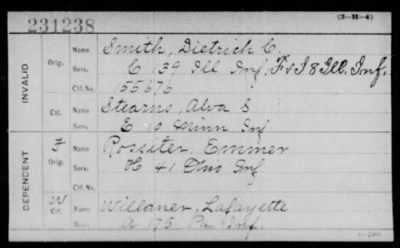 (3-H-4)
231238
INVALID
Orig. Name Smith, Dietrick C.
Serv. C 139 Ill Inf, F&S 8 Ill. Inf.
Ctf. No. 155676
Ctf. Name Stearns, Alva S
Serv. E 10 Minn Inf
DEPENDENT
F Orig. Name Rossiter, Emmer
Serv. H 41 Ohio Inf
Ctf. No.
W Ctf. Name Willaner, Lafayette
Serv. A 175 Pa Inf.